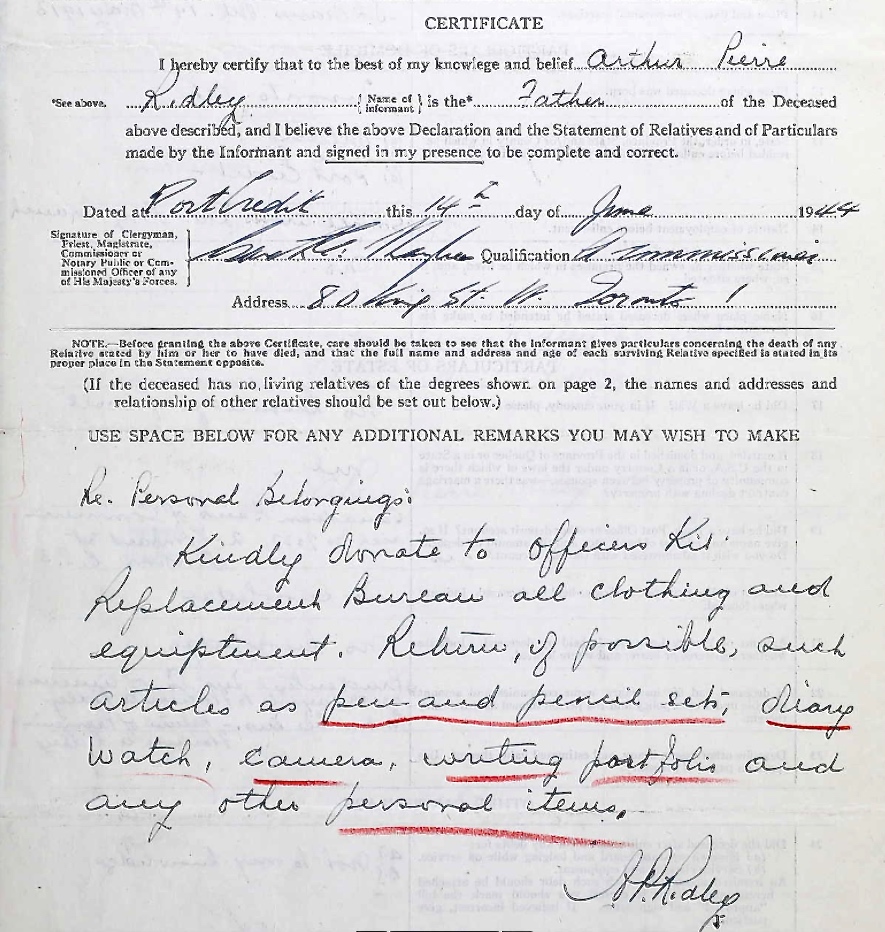 CERTIFICATE
I hereby certify that to the best of my knowlege and belief Arthur Pierre
*See above. Ridley { Name of informant } is the* Father of the Deceased
above described, and I believe the above Declaration and the Statement of Relatives and of Particulars
made by the Informant and signed in my presence to be complete and correct.
Dated at Port Credit this 14th day of June 1944
Signature of Clergyman,
Priest, Magistrate,
Commissioner or
Notary Public or Com-
missioned Officer of any
of His Majesty's Forces.
Qualification A Commissioner
Address 80 King St. W. Toronto 1
NOTE.—Before granting the above Certificate, care should be taken to see that the informant gives particulars concerning the death of any
Relative stated by him or her to have died, and that the full name and address and age of each surviving Relative specified is stated in its
proper place in the Statement opposite.
(If the deceased has no living relatives of the degrees shown on page 2, the names and addresses and
relationship of other relatives should be set out below.)
USE SPACE BELOW FOR ANY ADDITIONAL REMARKS YOU MAY WISH TO MAKE
Re. Personal Belongings:
Kindly donate to Officers Kit
Replacement Bureau all clothing and
equiptment. Return, if possible, such
articles as pen and pencil sets, diary
Watch, camera, writing portfolio and
any other personal items.
A.P. Ridley